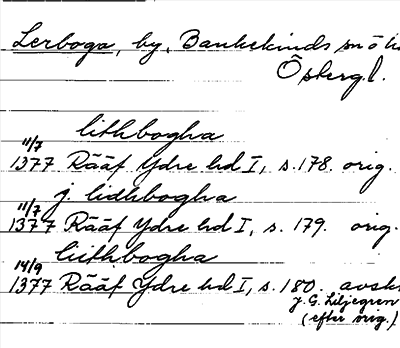 Lerboga, by, Bankekinds sn ö
Östergl.
lithbogha
11/7
1377 Rääf Ydre hd I, s. 178. orig.
j. lidhbogha
11/7
1377 Rääf Ydre hd I, s. 179. orig.
liithbogha
14/9
1377 Rääf Ydre hd I, s. 180. avskr
J. G. Liljegren
(efter orig.)